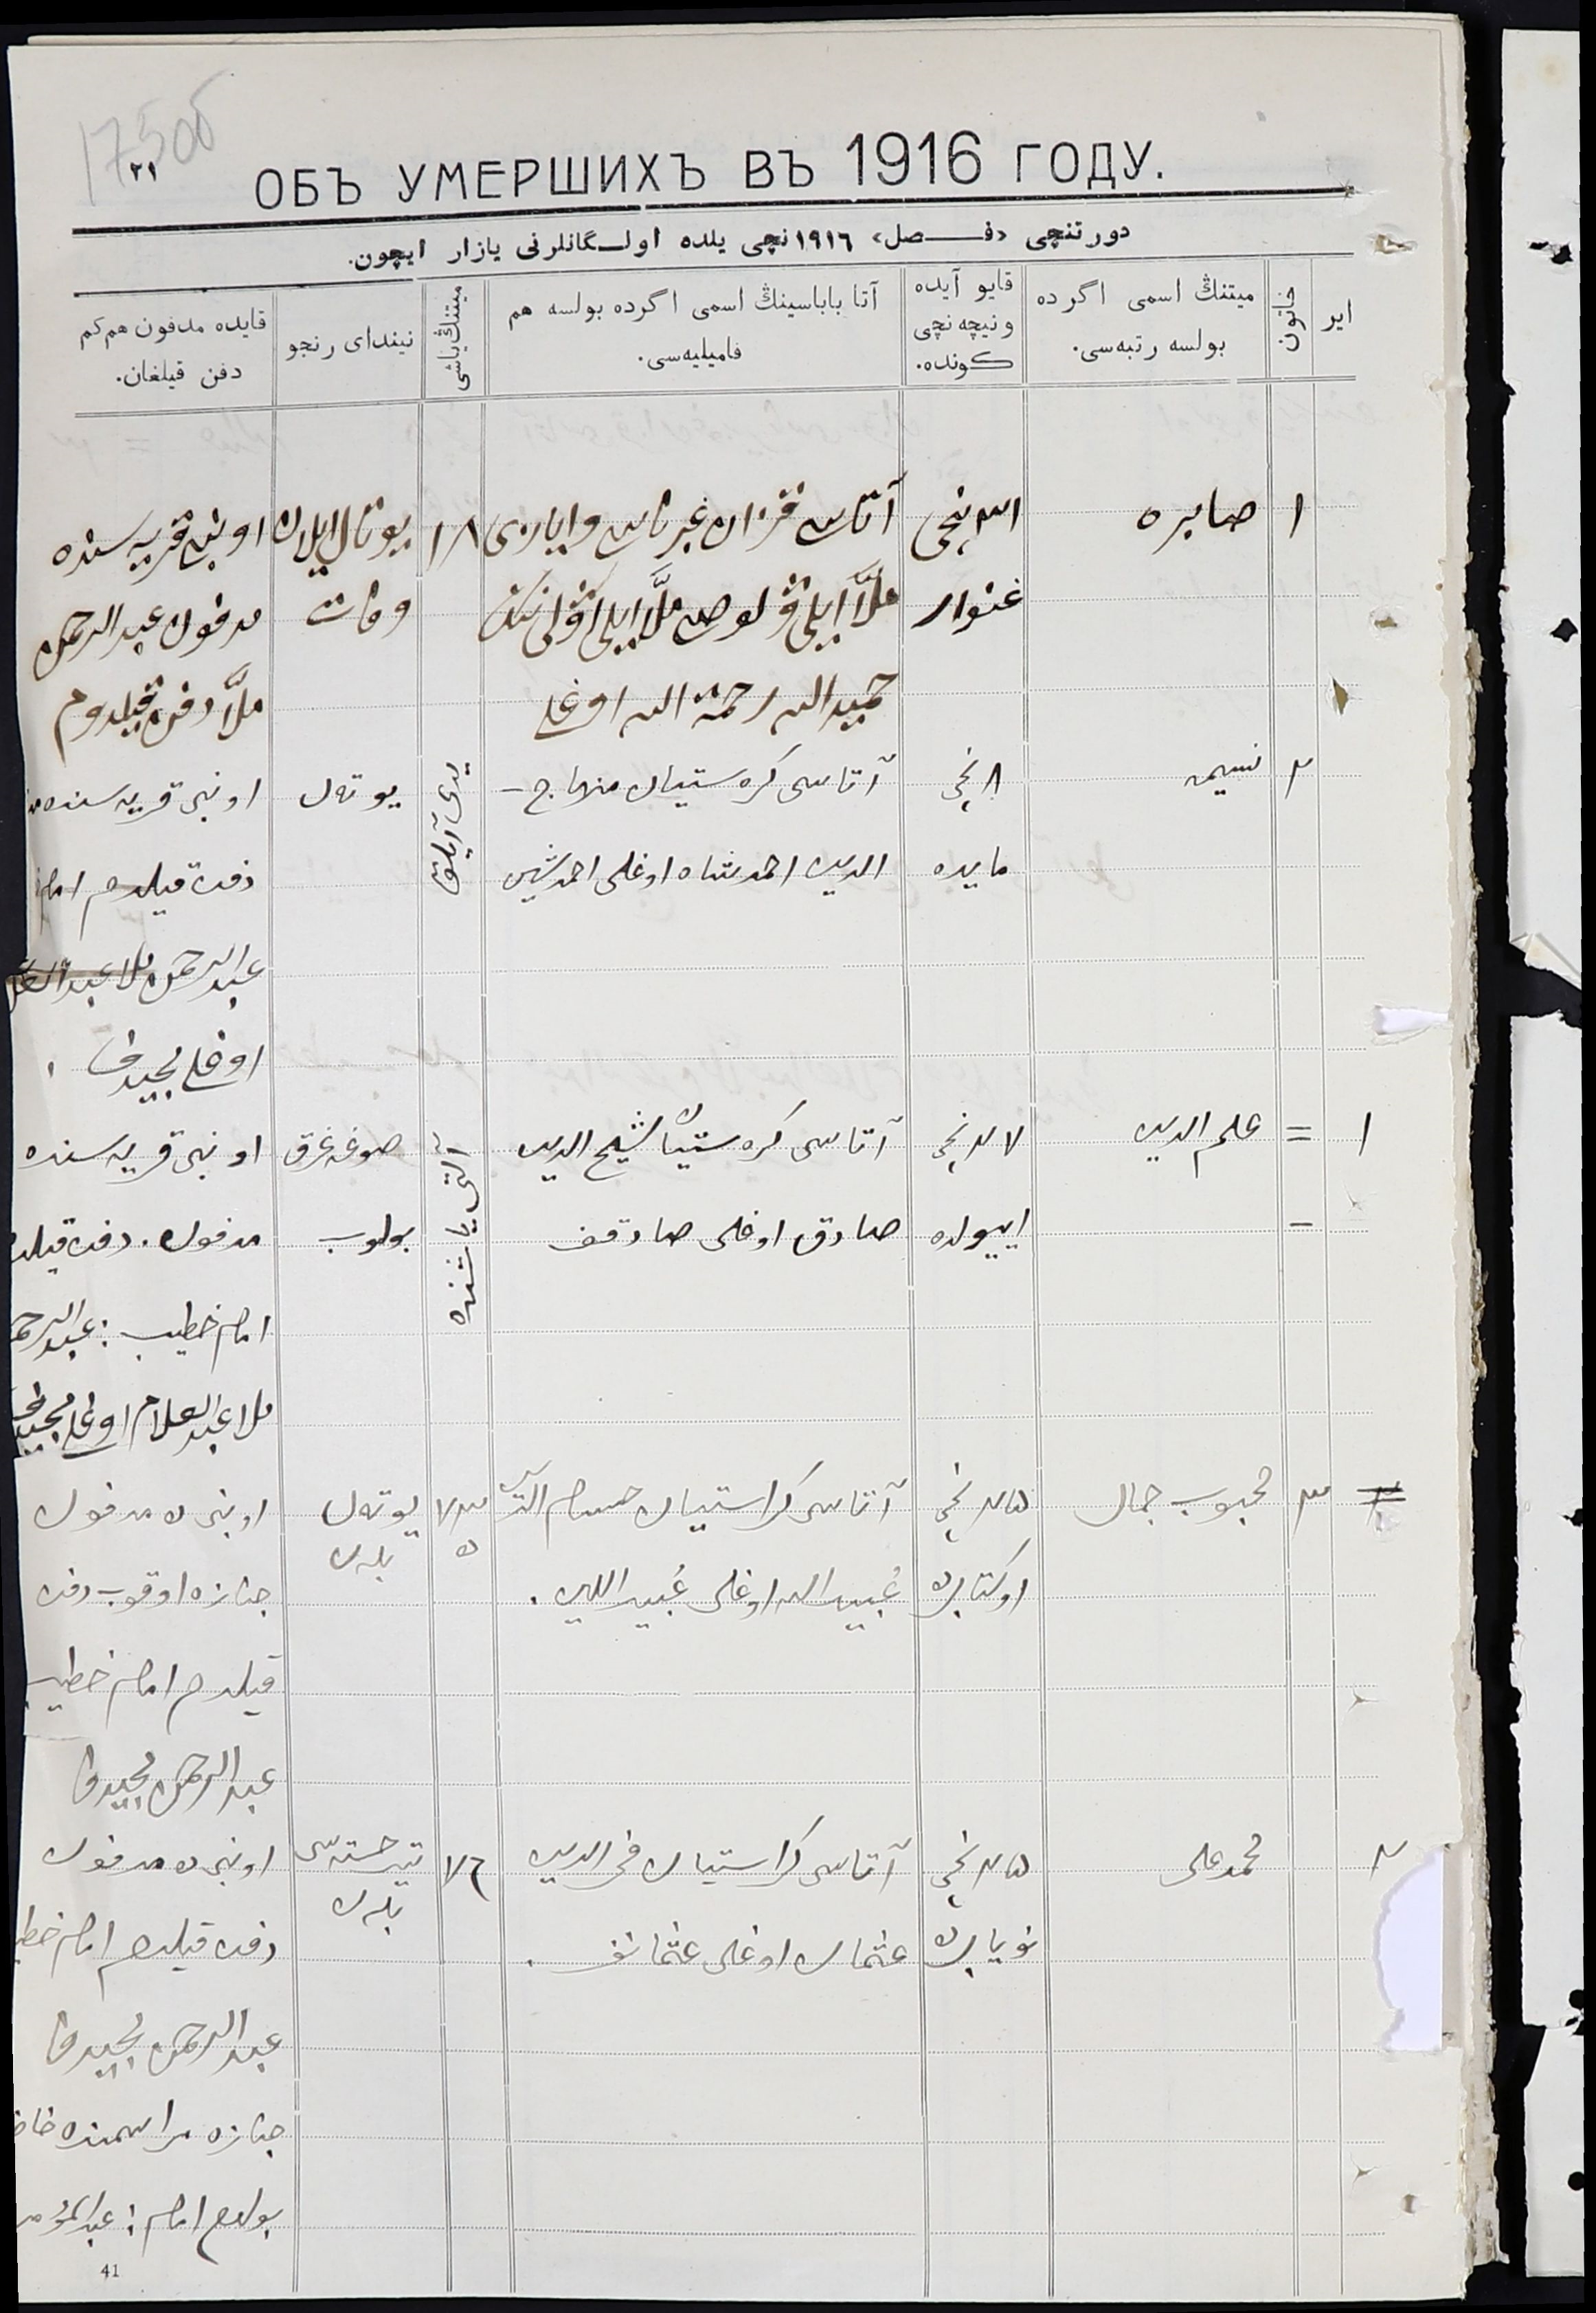 175об
٢١
ОБЪ УМЕРШИХЪ ВЪ 1916 ГОДУ.
دورتنچی «فـــصل» ١٩١٦نچی یلده اولـگانلرنی یازار ایچون.
ایر
خاتون
میتنڭ اسمی اگرده
بولسه رتبه‌سی.
قایو آیده
ونیچه‌نچی
كونده.
آتا باباسینڭ اسمی اگرده بولسه هم
فامیلیه‌سی.
میتنڭ یاشی
نیندای رنجو
قایده مدفون هم كم
دفن قیلغان.
١
صابره
نچی
غنوار
آتاسی
حمیدالله رحمة الله اوغلی
١٨
یوتال ایلان
وفات
اوبنی قریه سنده
مدفون عبدالرحمن
ملّا دفن قیلدوم
٢
نسیمه
٨نچی
مایده
آتاسی كره‌ستیان منهاج -
الدین احمدشاه اوغلی احمدشین
یدی آیلق
یوته‌ل
اوبنی قریه سنده
دفن قیلدم امام
عبدالرحمن ملا
اوغلی مجیدف
١ =
علم الدین
٢٧نچی
اییولده
آتاسی كره‌ستیان شیخ الدین
صادق اوغلی صادقف
آلتی یاشنده
صوغه غرق
بولوب
اوبنی قریه سنده
مدفون. دفن قیلد
امام خطیب: عبدالرحم
ملا عبدالعلام اوغلی مجید
٣
محبوب جمال
٢٥نچی
اوكتابر
آتاسی كراستیان حسام الدین
عُبیدالله اوغلی عُبیداللین.
٧٣
یوته‌ل
بله‌ن
اوبنی ده مدفون
جنازه اوقوب دفن
قیلدم امام خطیب
عبدالرحمن مجیدف
٢
محمدعلی
٢٥نچی
نویابر
آتاسی كراستیان فخرالدین
عثمان اوغلی عثمانف.
٧٦
تیر خسته‌سی
بله‌ن
اوبنی ده مدفون
دفن قیلدم امام خطی
عبدالرحمن مجیدف
جنازه مراسمنده حاض
بولدم امام: عبدالمؤمن
41